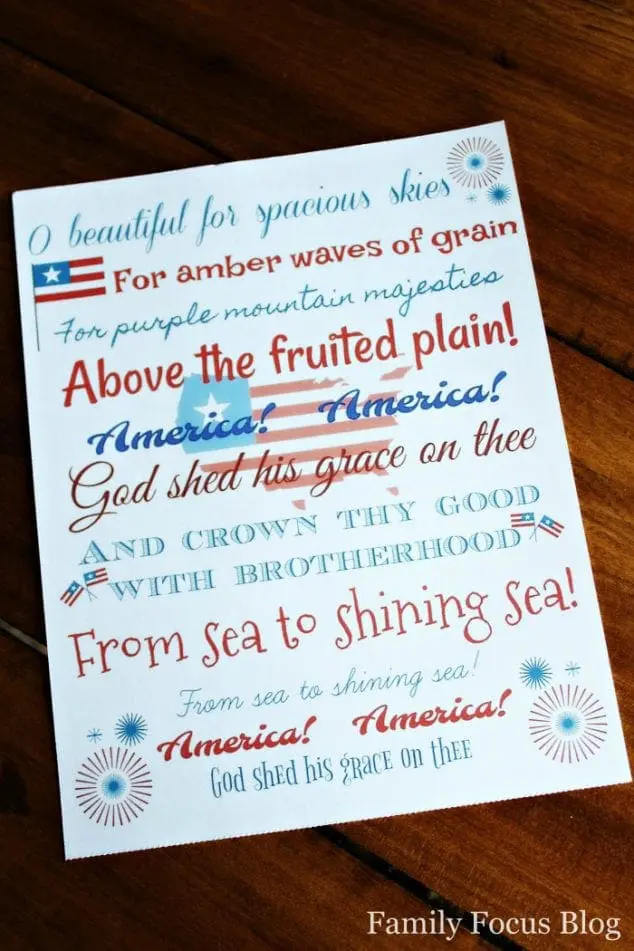 O beautiful for spacious skies
For amber waves of grain
For purple mountain majesties
Above the fruited plain!
America! America!
God shed his grace on thee
AND CROWN THY GOOD
WITH BROTHERHOOD
From sea to shining sea!
From sea to shining sea!
America! America!
God shed his grace on thee
Family Focus Blog